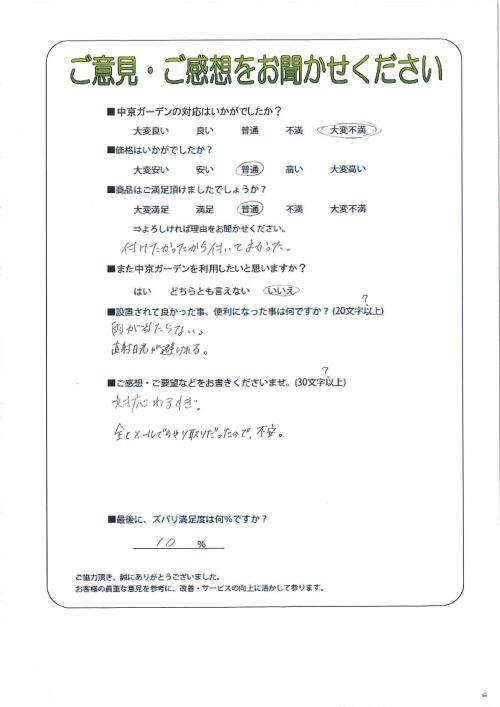 ご意見・ご感想をお聞かせください
■中京ガーデンの対応はいかがでしたか？
大変良い 良い 普通 不満 大変不満
■価格はいかがでしたか？
大変安い 安い 普通 高い 大変高い
■商品はご満足頂けましたでしょうか？
大変満足 満足 普通 不満 大変不満
⇒よろしければ理由をお聞かせください。
付けたかったから付いてよかった。
■また中京ガーデンを利用したいと思いますか？
はい どちらとも言えない いいえ
?
■設置されて良かった事、便利になった事は何ですか？(20文字以上)
雨が当たらない。
直射日光が避けれる。
?
■ご感想・ご要望などをお書きくださいませ。(30文字以上)
対応わるすぎ。
全てメールでのやり取りだったので、不安。
■最後に、ズバリ満足度は何％ですか？
10 %
ご協力頂き、誠にありがとうございました。
お客様の貴重な意見を参考に、改善・サービスの向上に活かして参ります。